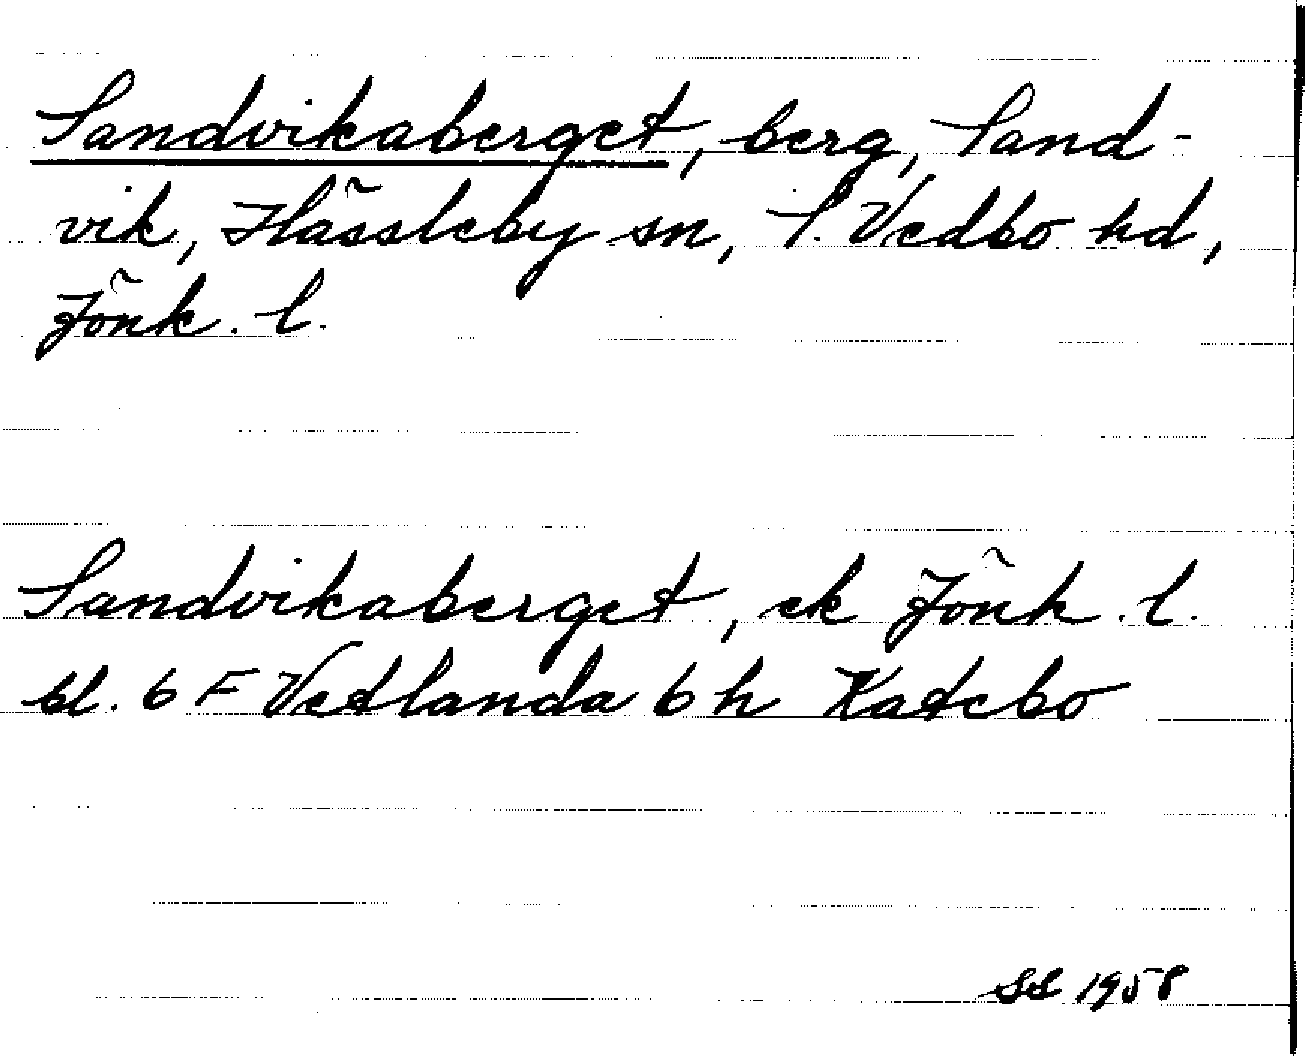 Sandvikaberget, berg, Sand-
vik, Hässleby sn, S. Vedbo hd,
Jönk. l.
Sandvikaberget, ek Jönk. l.
bl. 6 F Vetlanda 6 h Katebo
SL 1958